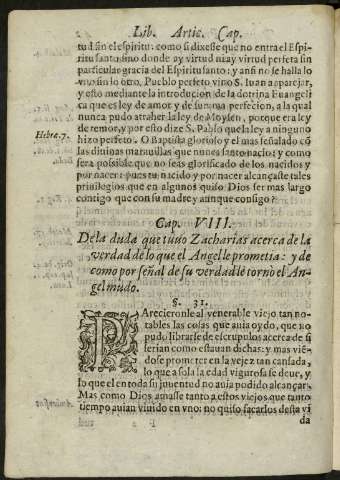 Lib. Artic. Cap.
tud sin el espiritu: como si dixesse que no entra el Espi-
ritu santo, sino donde ay virtud ni ay virtud perfeta sin
particular gracia del Espiritu santo: y ansi no se halla lo
vno sin lo otro. Pueblo perfeto vino S. Iuan a aparejar,
y esto mediante la introducion de la dotrina Euangeli
ca que es ley de amor y de summa perfecion, a la qual
nunca pudo atraher la ley de Moysen, porque era ley
de temor, y por esto dize S. Pablo que la ley a ninguno
Hebræ. 7.
hizo perfeto. O Baptista glorioso y el mas señalado cō
las diuinas marauillas que nunca santo nacio: y como
sera possible que no seas glorificado de los nacidos y
por nacer: pues tu nacido y por nacer alcançaste tales
priuilegios que en algunos quiso Dios ser mas largo
contigo que con su madre y aun que consigo?
Cap. VIII.
De la duda que tuuo Zacharias acerca de la
verdad de lo que el Angel le prometia: y de
como por señal de su verdad le tornò el An-
gel mudo.
§. 31.
PArecieronle al venerable viejo tan no-
tables las cosas que auia oydo, que no
pudo librarse de escrupulos acerca de si
serian como estauan dichas: y mas viēn
dose prometer en la vejez tan cansada,
lo que a sola la edad vigorosa se deue, y
lo que el en toda su juuentud no auia podido alcançar.
Mas como Dios amasse tanto a estos viejos que tanto
tiempo auian viuido en vno: no quiso sacarlos desta vi
da